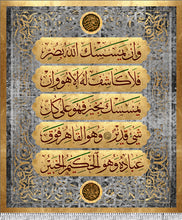 وَإِن يَمْسَسْكَ اللَّهُ بِضُرٍّ
فَلَا كَاشِفَ لَهُ إِلَّا هُوَ وَإِن
يَمْسَسْكَ بِخَيْرٍ فَهُوَ عَلَىٰ كُلِّ
شَيْءٍ قَدِيرٌ وَهُوَ الْقَاهِرُ فَوْقَ
عِبَادِهِ وَهُوَ الْحَكِيمُ الْخَبِيرُ